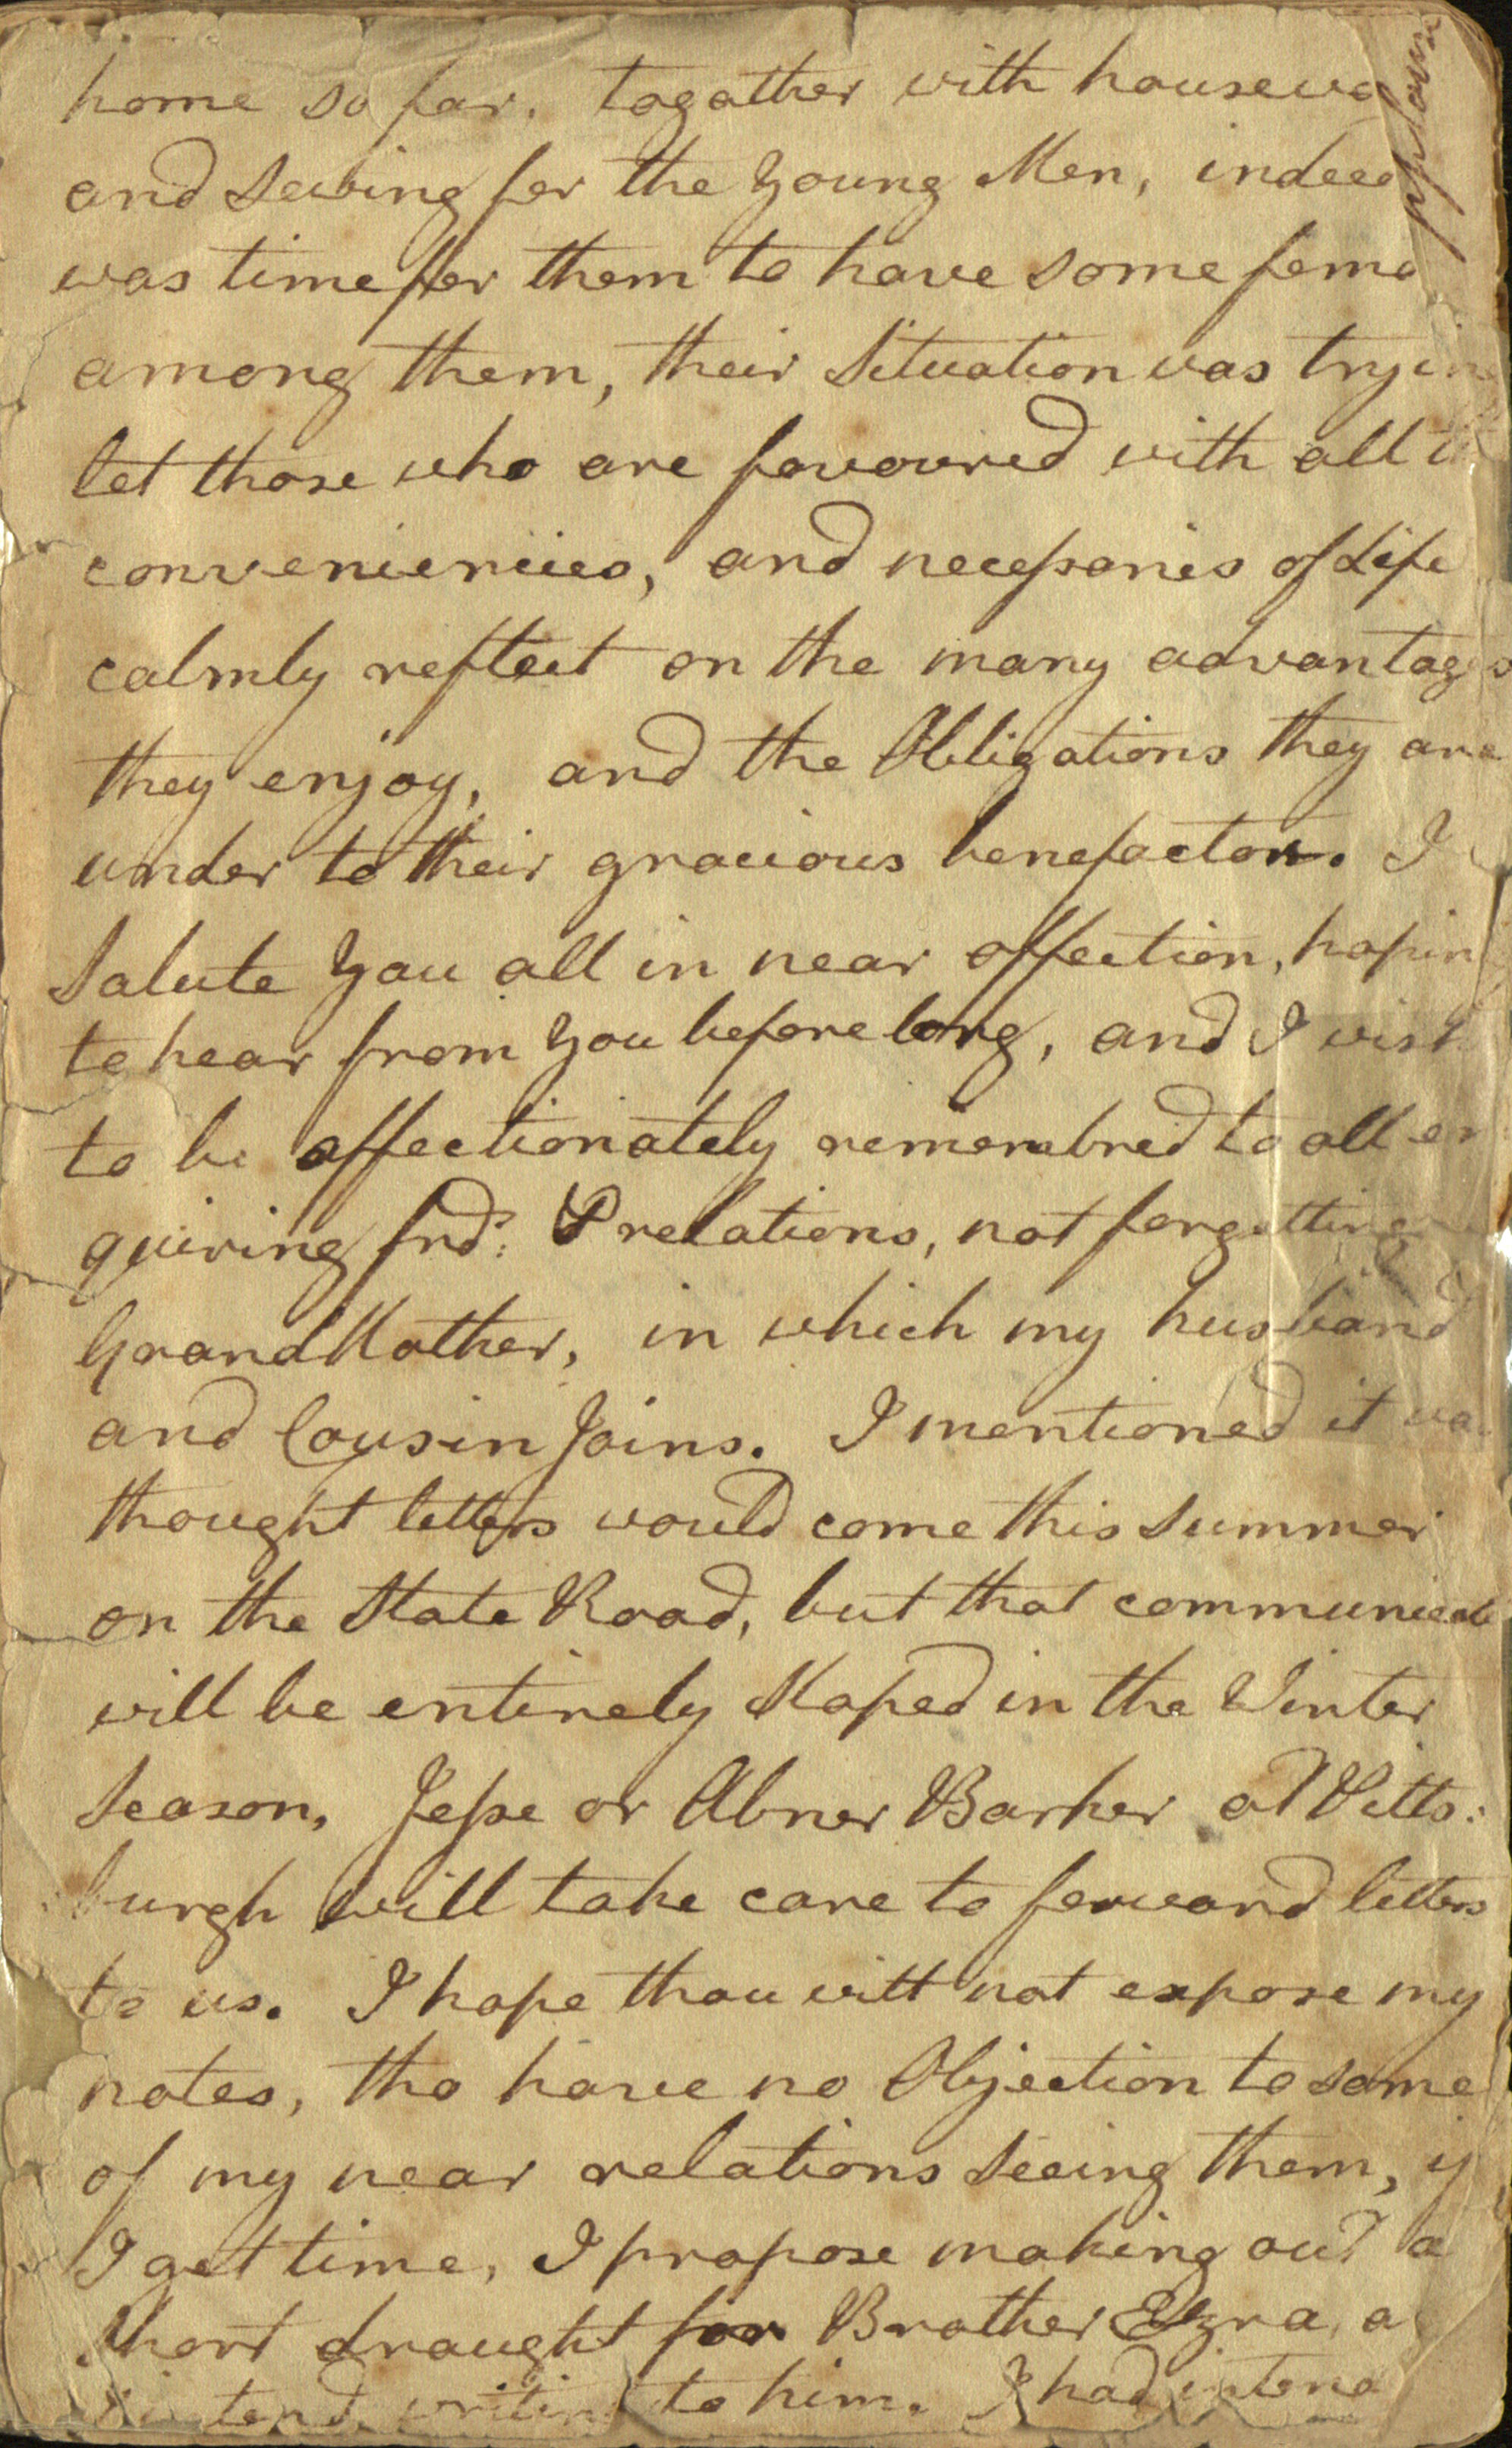 home so far, togather with housewo
and Sewing for the Young Men, indeed
was time for them to have some fema
among them, their Situation was tryin
let those who are favoured with all th
convenienciies, and necessaries of Life
calmly reflect on the many advantages
they enjoy, and the Obligations they are
under to their gracious benefactor. I
Salute You all in near affection, hopin
to hear from You before long, and I wish
to be affectionately remembred to all en
quiring frds: & relations, not forgetting
GrandMother, in which my husband
and Cousin Joins. I mentioned it wa
thought letters would come this Summer
on the State Road, but that communicat
will be entirely Stoped in the Winter
Season, Jesse or Abner Barker at Pitts:
burgh will take care to forward letters
to us. I hope thou will not expose my
notes, tho have no Objection to some
of my near relations Seeing them, if
I get time, I propose making out a
Short draught for Brother Ezra, a
intend writing to him. I had intend